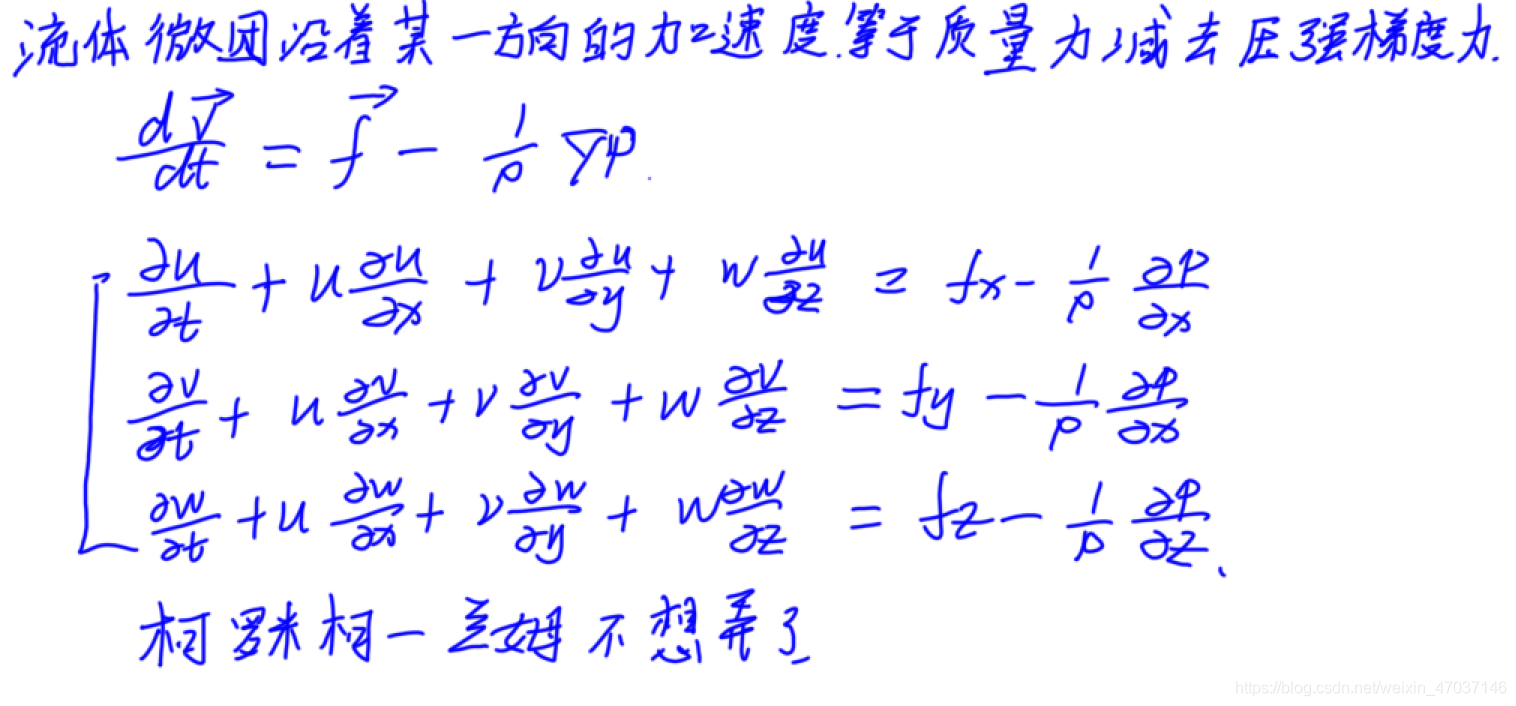 流体微团沿着某一方向的加速度.等于质量力减去压强梯度力.
$\frac{d\vec{V}}{dt} = \vec{f} - \frac{1}{\rho} \nabla p.$
$\frac{\partial u}{\partial t} + u\frac{\partial u}{\partial x} + v\frac{\partial u}{\partial y} + w\frac{\partial u}{\partial z} = fx - \frac{1}{\rho}\frac{\partial p}{\partial x}$
$\frac{\partial v}{\partial t} + u\frac{\partial v}{\partial x} + v\frac{\partial v}{\partial y} + w\frac{\partial v}{\partial z} = fy - \frac{1}{\rho}\frac{\partial p}{\partial x}$
$\frac{\partial w}{\partial t} + u\frac{\partial w}{\partial x} + v\frac{\partial w}{\partial y} + w\frac{\partial w}{\partial z} = fz - \frac{1}{\rho}\frac{\partial p}{\partial z}、$
柯罗米柯一兰姆不想弄了
https://blog.csdn.net/weixin_47037146